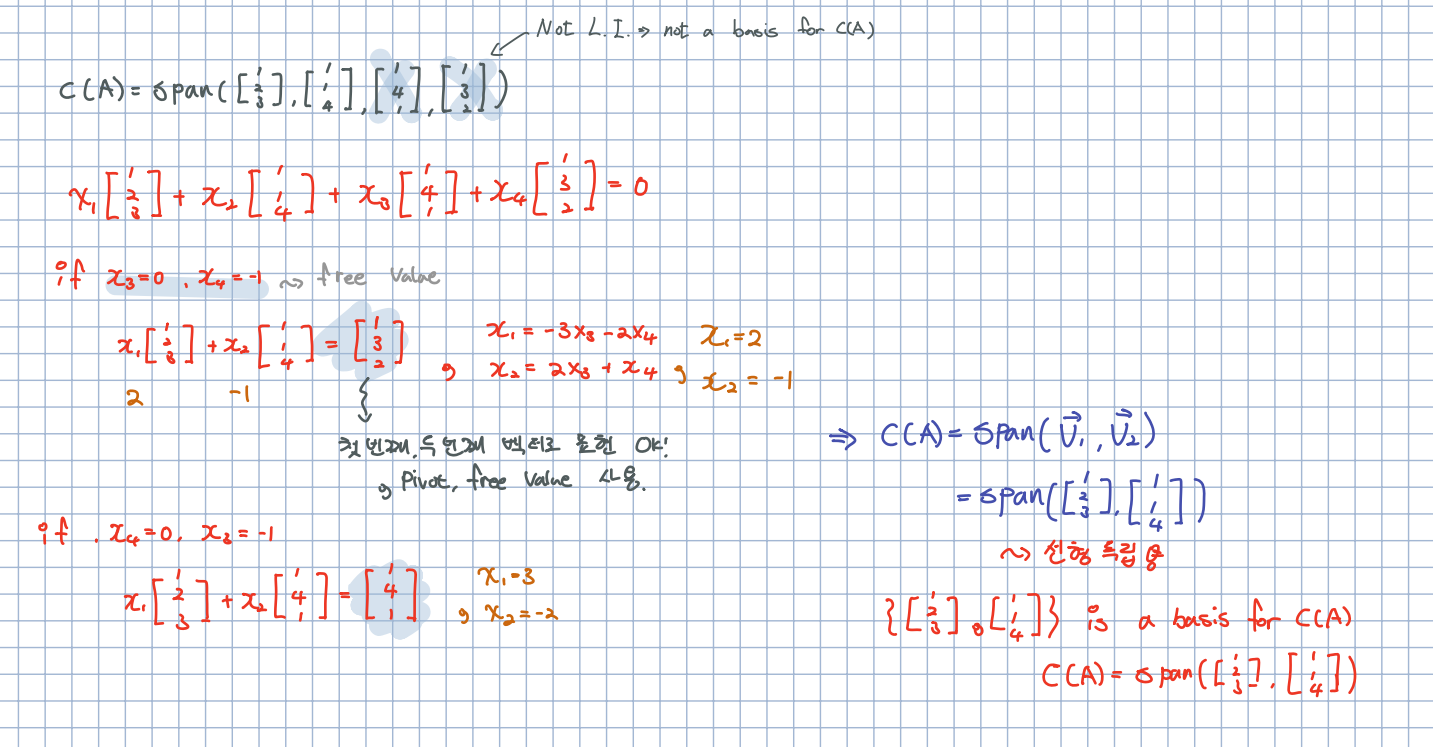 Not L.I. ⇒ not a basis for C(A)
C(A) = span([1 2 3], [1 1 4], [1 4 1], [1 3 2])
x₁[1 2 3] + x₂[1 1 4] + x₃[1 4 1] + x₄[1 3 2] = 0
if x₃=0, x₄=-1 ⇝ free value
x₁[1 2 3] + x₂[1 1 4] = [1 3 2]
2 -1
, x₁ = -3x₃-2x₄
x₂ = 2x₃+x₄
, x₁=2
x₂ = -1
첫번째, 두번째 벡터로 표현 OK!
, Pivot, free value 사용.
if . x₄=0, x₃=-1
x₁[1 2 3] + x₂[1 4 1] = [1 4 1]
x₁=3
, x₂=-2
⇒ C(A) = span(v⃗₁, v⃗₂)
= span([1 2 3], [1 1 4])
⇝ 선형 독립 용
{[1 2 3], [1 1 4]} is a basis for C(A)
C(A) = span([1 2 3], [1 1 4])